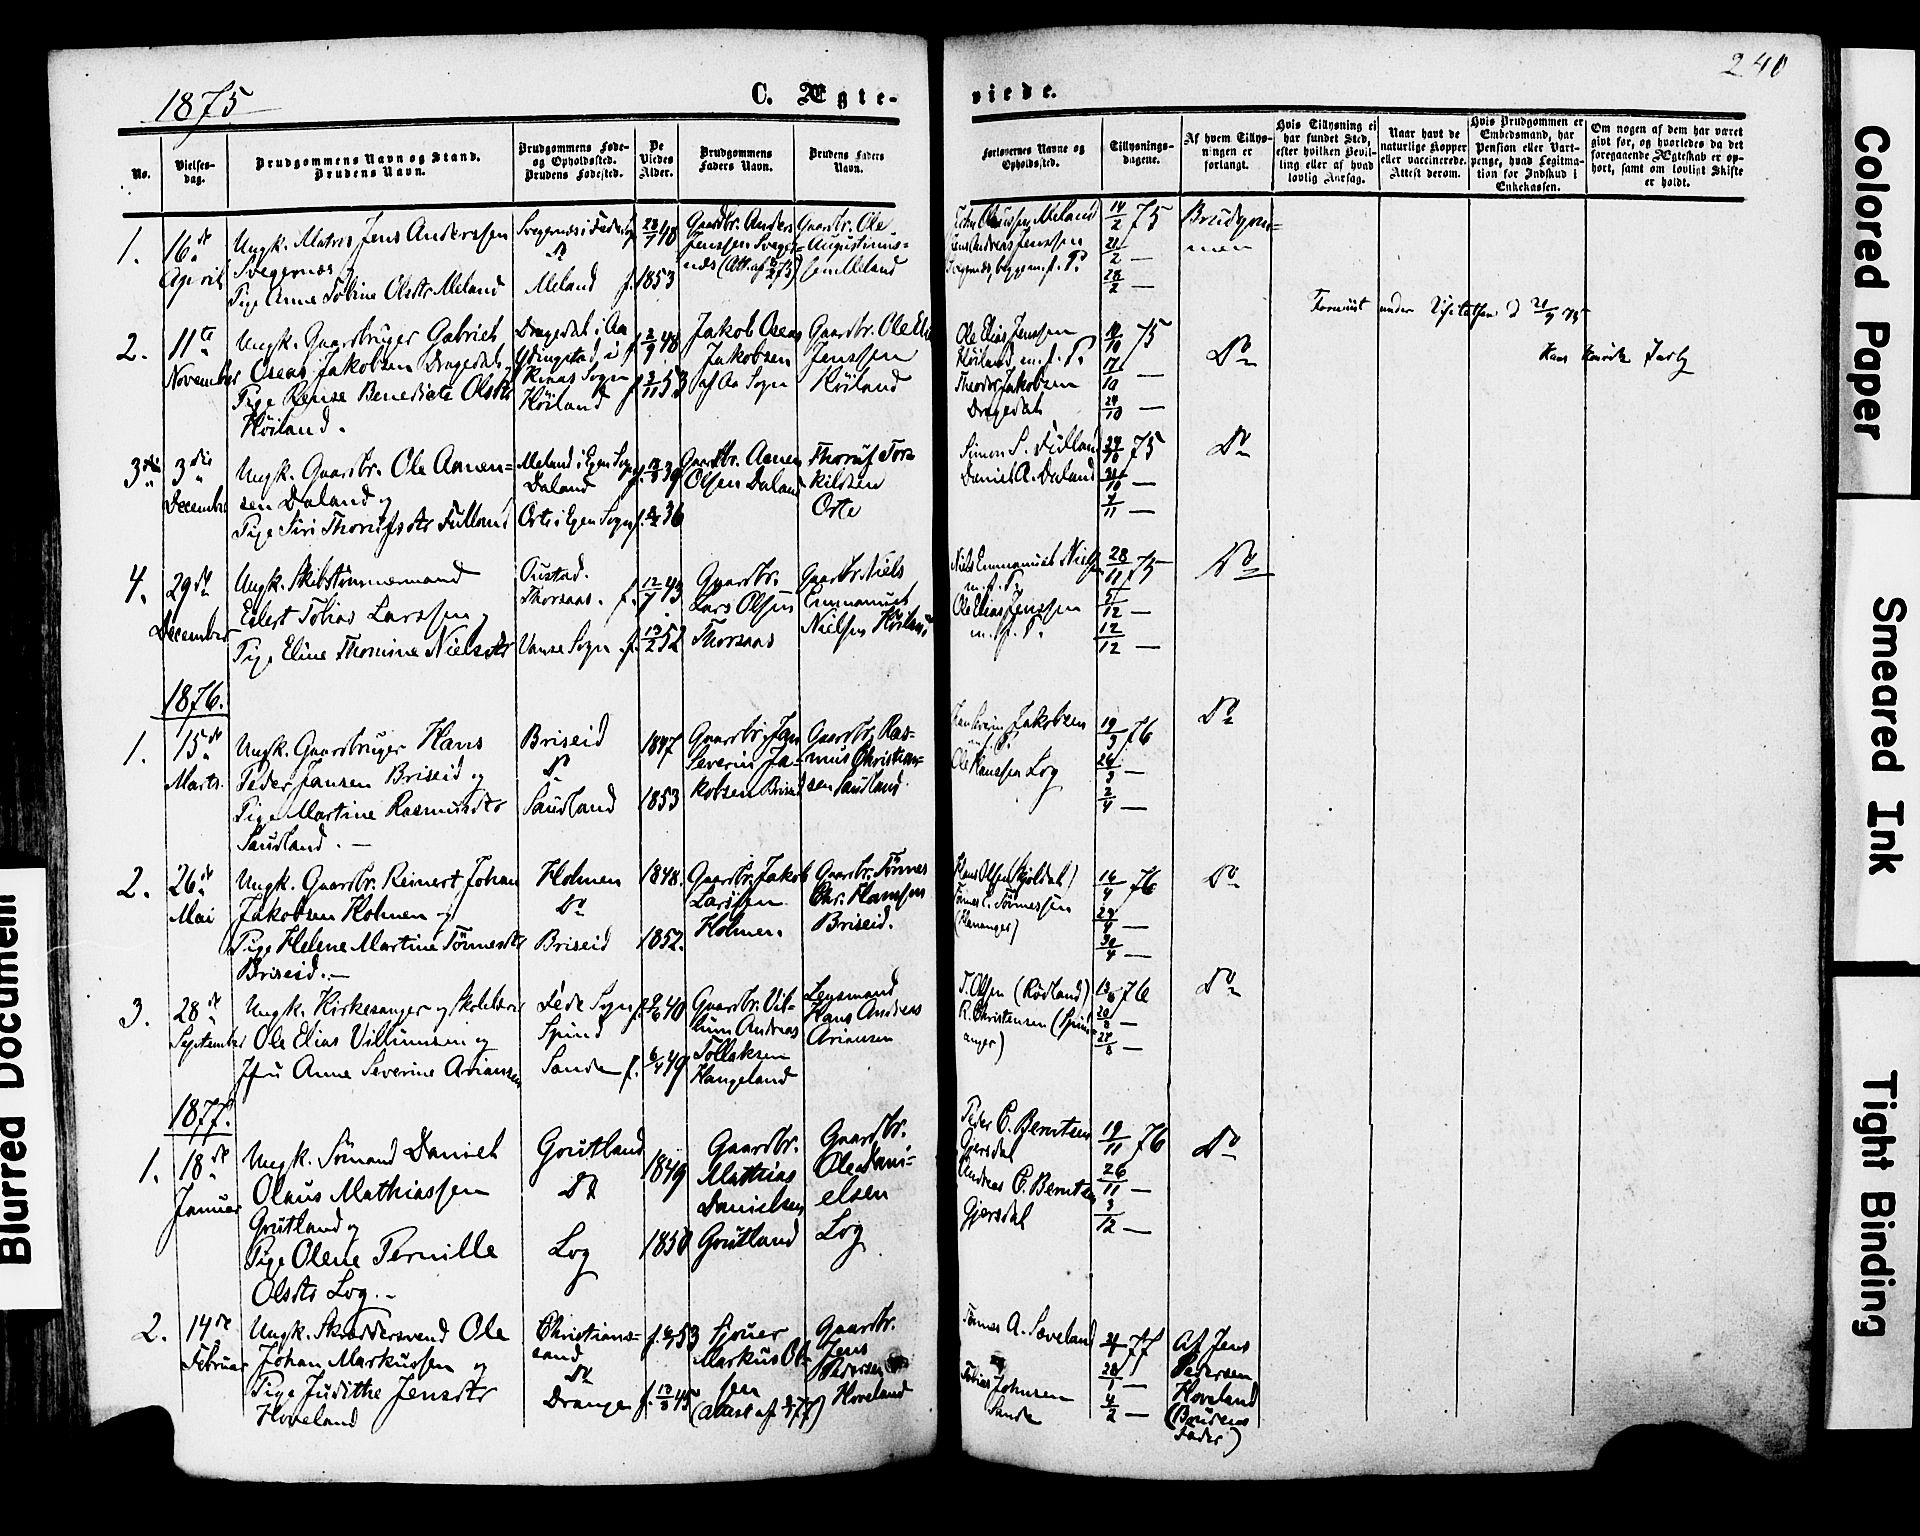 1875
C. Ægte-
viede.
240
No.
Vielses-
dag.
Brudgommens Navn og Stand.
Brudens Navn.
Brudgommens Føde-
og Opholdssted.
Brudens Fødested.
De
Viedes
Alder.
Brudgommens
Faders Navn.
Brudens Faders
Navn.
Forlovernes Navne og
Opholdssted.
Tillysnings-
dagene.
Af hvem Tillys-
ningen er
forlangt.
Hvis Tillysning ei
har fundet Sted,
efter hvilken Bevil-
ling eller af hvad
lovlig Aarsag.
Naar havt de
naturlige Kopper
eller vaccinerede.
Attest derom.
Hvis Brudgommen er
Embedsmand, har
Pension eller Vart-
penge, hvad Legitima-
tion for Indskud i
Enkekassen.
Om nogen af dem har været
givt før, og hvorledes da det
foregaaende Ægteskab er op-
hørt, samt om lovligt Skifte
er holdt.
1.
16de
April
Ungk. Matros Jens Anderssen
Svegernæs
Pige Anne Tobine Olsdtr Meland
Meland
f. 1853
Gaardbr. Anders
Jenssen Sveger-
næs
Gaardbr. Ole
Augustinus-
sen Meland
14/2 75
21/2 —
28/2 —
Brudgom-
men
2.
11te
November
Ungk. Gaardbruger Gabriel
Oseas Jakobsen Dragedal,
Pige Rense Benedicte Olsdtr
Høiland.
Dragedal i Aa
Høiland
Jakob Oseas
Jakobsen
af Aa Sogn
Gaardbr. Ole Elias
Jenssen
Høiland
Ole Elias Jenssen
Høiland m. f. P.
Theodor Jakobsen
Dragedal
10/10 75
17/10 —
24/10 —
Do
3die
3die
December
Ungk. Gaardbr. Ole Aanen-
sen Daland og
Pige Siri Thorufsdtr Fulland
Meland i Egen Sogn
Daland
Orte i Egen Sogn
Gaardbr. Aanen
Olsen Daland
Thoruf Tors
kildsen
Orte
Simon S. Fulland
Daniel A. Daland
24/10 75
31/10 —
7/11 —
Do
4.
29de
December
Ungk. Skibstømmermand
Eilert Tobias Larssen og
Pige Eline Thomine Nielsdtr
Thorsaas.
f. 12/7 43
Vanse Sogn
f. 13/2 52
Gaardbr.
Lars Olsen
Thorsaas
Gaardbr Niels
Emmanuel
Nielsen Høiland
Niels Emmanuel Nielsen
m. f. P.
Ole Elias Jenssen
m. f. P.
28/11 75
5/12 —
12/12 —
Do
1876.
1.
15de
Marts.
Ungk. Gaardbruger Hans
Peder Jansen Briseid og
Pige Martine Rasmusdtr
Saudland. —
Briseid
Do
Saudland
1847
1853
Gaardbr. Jan
Severin Ja-
kobsen Briseid
Gaardbr. Ras-
mus Christian-
sen Saudland.
Jan Severin Jakobsen
m. f. P.
Ole Hanssen Log
19/3 76
26/3 —
2/4 —
Do
2.
26de
Mai
Ungk. Gaardbr. Reinert Johan
Jakobsen Holmen og
Pige Helene Martine Tönnesdtr
Briseid. —
Holmen
Do
Briseid
1848.
1852.
Gaardbr. Jakob
Larssen
Holmen.
Gaardbr. Tönnes
Chr. Hanssen
Briseid.
Hans Olsen (Skjoldal)
Tönnes C. Tönnessen
16/4 76
30/4 —
Do
3.
28de
September
Ungk. Kirkesanger og Skolelærer
Ole Elias Villumsen og
Jfru Anne Severine Ariansen
Fede Sogn
Spind
Sande
f. 6/4 49
Gaardbr. Vil-
lum Andreas
Tollaksen
Haugeland
Lensmand
Hans Andreas
Ariansen
T. Olsen (Rødland)
R. Christensen (Spind-
anger)
13/8 76
20/8 —
27/8 —
Do
1877.
1.
18de
Januar
Ungk. Sömand Daniel
Olaus Mathiassen
Grutland og
Pige Olene Pernille
Olsdtr Log. —
Grutland
Do
Log
1849
1850
Gaardbr.
Mathias
Danielsen
Grutland
Gaardbr.
Ole Dani-
elsen
Log
Peder C. Berntsen
Gjersdal
Andreas C. Berntsen
Gjersdal
19/11 76
26/11 —
3/12 —
Do
2.
14de
Februar
Ungk. Skræddersvend Ole
Johan Markussen og
Pige Judithe Jensdtr
Hoveland
Christians-
sand
Do
Drange
Markus Ol-
sen
Gaardbr.
Jens
Pedersen
Hoveland
Tönnes A. Sæveland
Tobias Johnsen
Sande
28/1 —
4/2 —
Af Jens
Pedersen
Hoveland
(Brudens
Fader)
Colored Paper
Smeared Ink
Tight Binding
Blurred Document